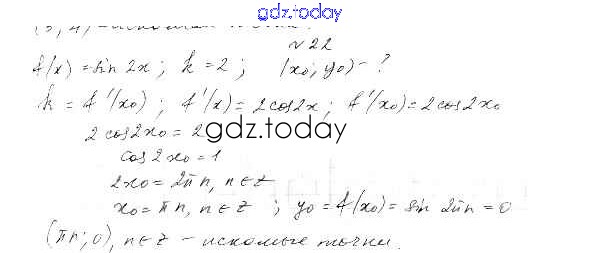 gdz.today
№22
f(x) = sin 2x ; k = 2 ; (x₀; y₀) - ?
k = f'(x₀) ; f'(x) = 2cos2x ; f'(x₀) = 2cos2x₀
2cos2x₀ = 2
gdz.today
cos2x₀ = 1
2x₀ = 2πn, n∈Z
x₀ = πn, n∈Z ; y₀ = f(x₀) = sin 2πn = 0
(πn; 0), n∈Z - искомые точки.